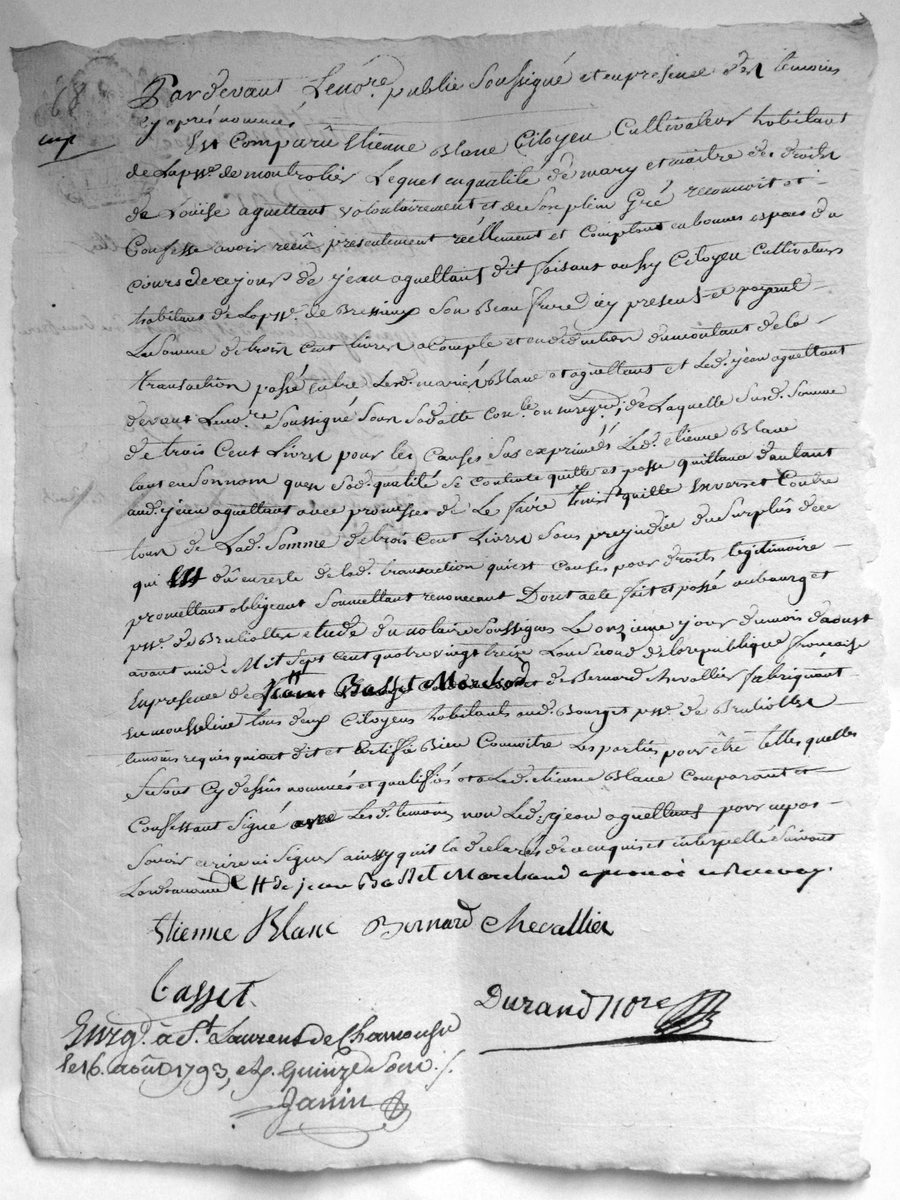 68
Pardevant Lenore. public soussigné et en presence des temoins
cy après nommés
Est comparû Etienne Blanc Citoyen Cultivateur habitant
de Lapsse. de montrotier Lequel en qualité de mary et maitre des droits
de Louise aguettant volontairement et de son plein Gré reconnoit et
Confesse avoir recû presentement réellement et comptant en bonnes espces du
cours de ce jour de jean aguettant dit foisant aussy Citoyen Cultivateur
habitant de Lapsse. de Brussieux son Beau frere icy present et payant
La somme de trois cent livres acompte et en deduction du montant de la
transaction passé entre Lesd. mariés Blanc et aguettant et Led. jean aguettant
devant Lenore. soussigné sous sa datte de Laquelle susd. somme
de trois Cent Livres pour les Causes sus exprimées Led. etienne Blanc
tant en son nom quen sad. qualité se contente quitte et passe quittance dautant
aud. jean aguettant avec promesses de Le faire tenir quitte Envers et Contre
tous de Lad. somme de trois cent Livres sans prejudice du surplus de ce
qui Est dû en reste de lad. transaction qui est causée pour droits legitimaire
promettant obligeant soumettant renonceant Dont acte fait et passé au bourg et
psse. de Brullioles etude du notaire soussigné Le onzieme jour du mois d'aoust
avant midi Mil sept cent quatre vingt treize Lan second de la republique francaise
En presence de de Bernard chevallier fabriquant
en mousseline tous deux Citoyens habitants aud. Bourg et psse. de Brullioles
temoins requis qui ont dit et certifié Bien Connoitre Les parties pour être telles quelles
se sont cy dessus nommées et qualifiés et a Led. etienne Blanc comparant et
Confessant signé avec Lesd. temoins non Led. jean aguettant pour ne pas
savoir ecrire ni signer ainssy quil la declaré de ce enquis et interpellé suivant
Lordonnance # de jean Basset Marchand approuvé Le Renvoy.
Etienne Blanc Bernard Chevallier
Basset
Durand Nore
Enrgt. à St. Laurent de Chamousset
le 16. août 1793, R. quinze sous ./.
Janin